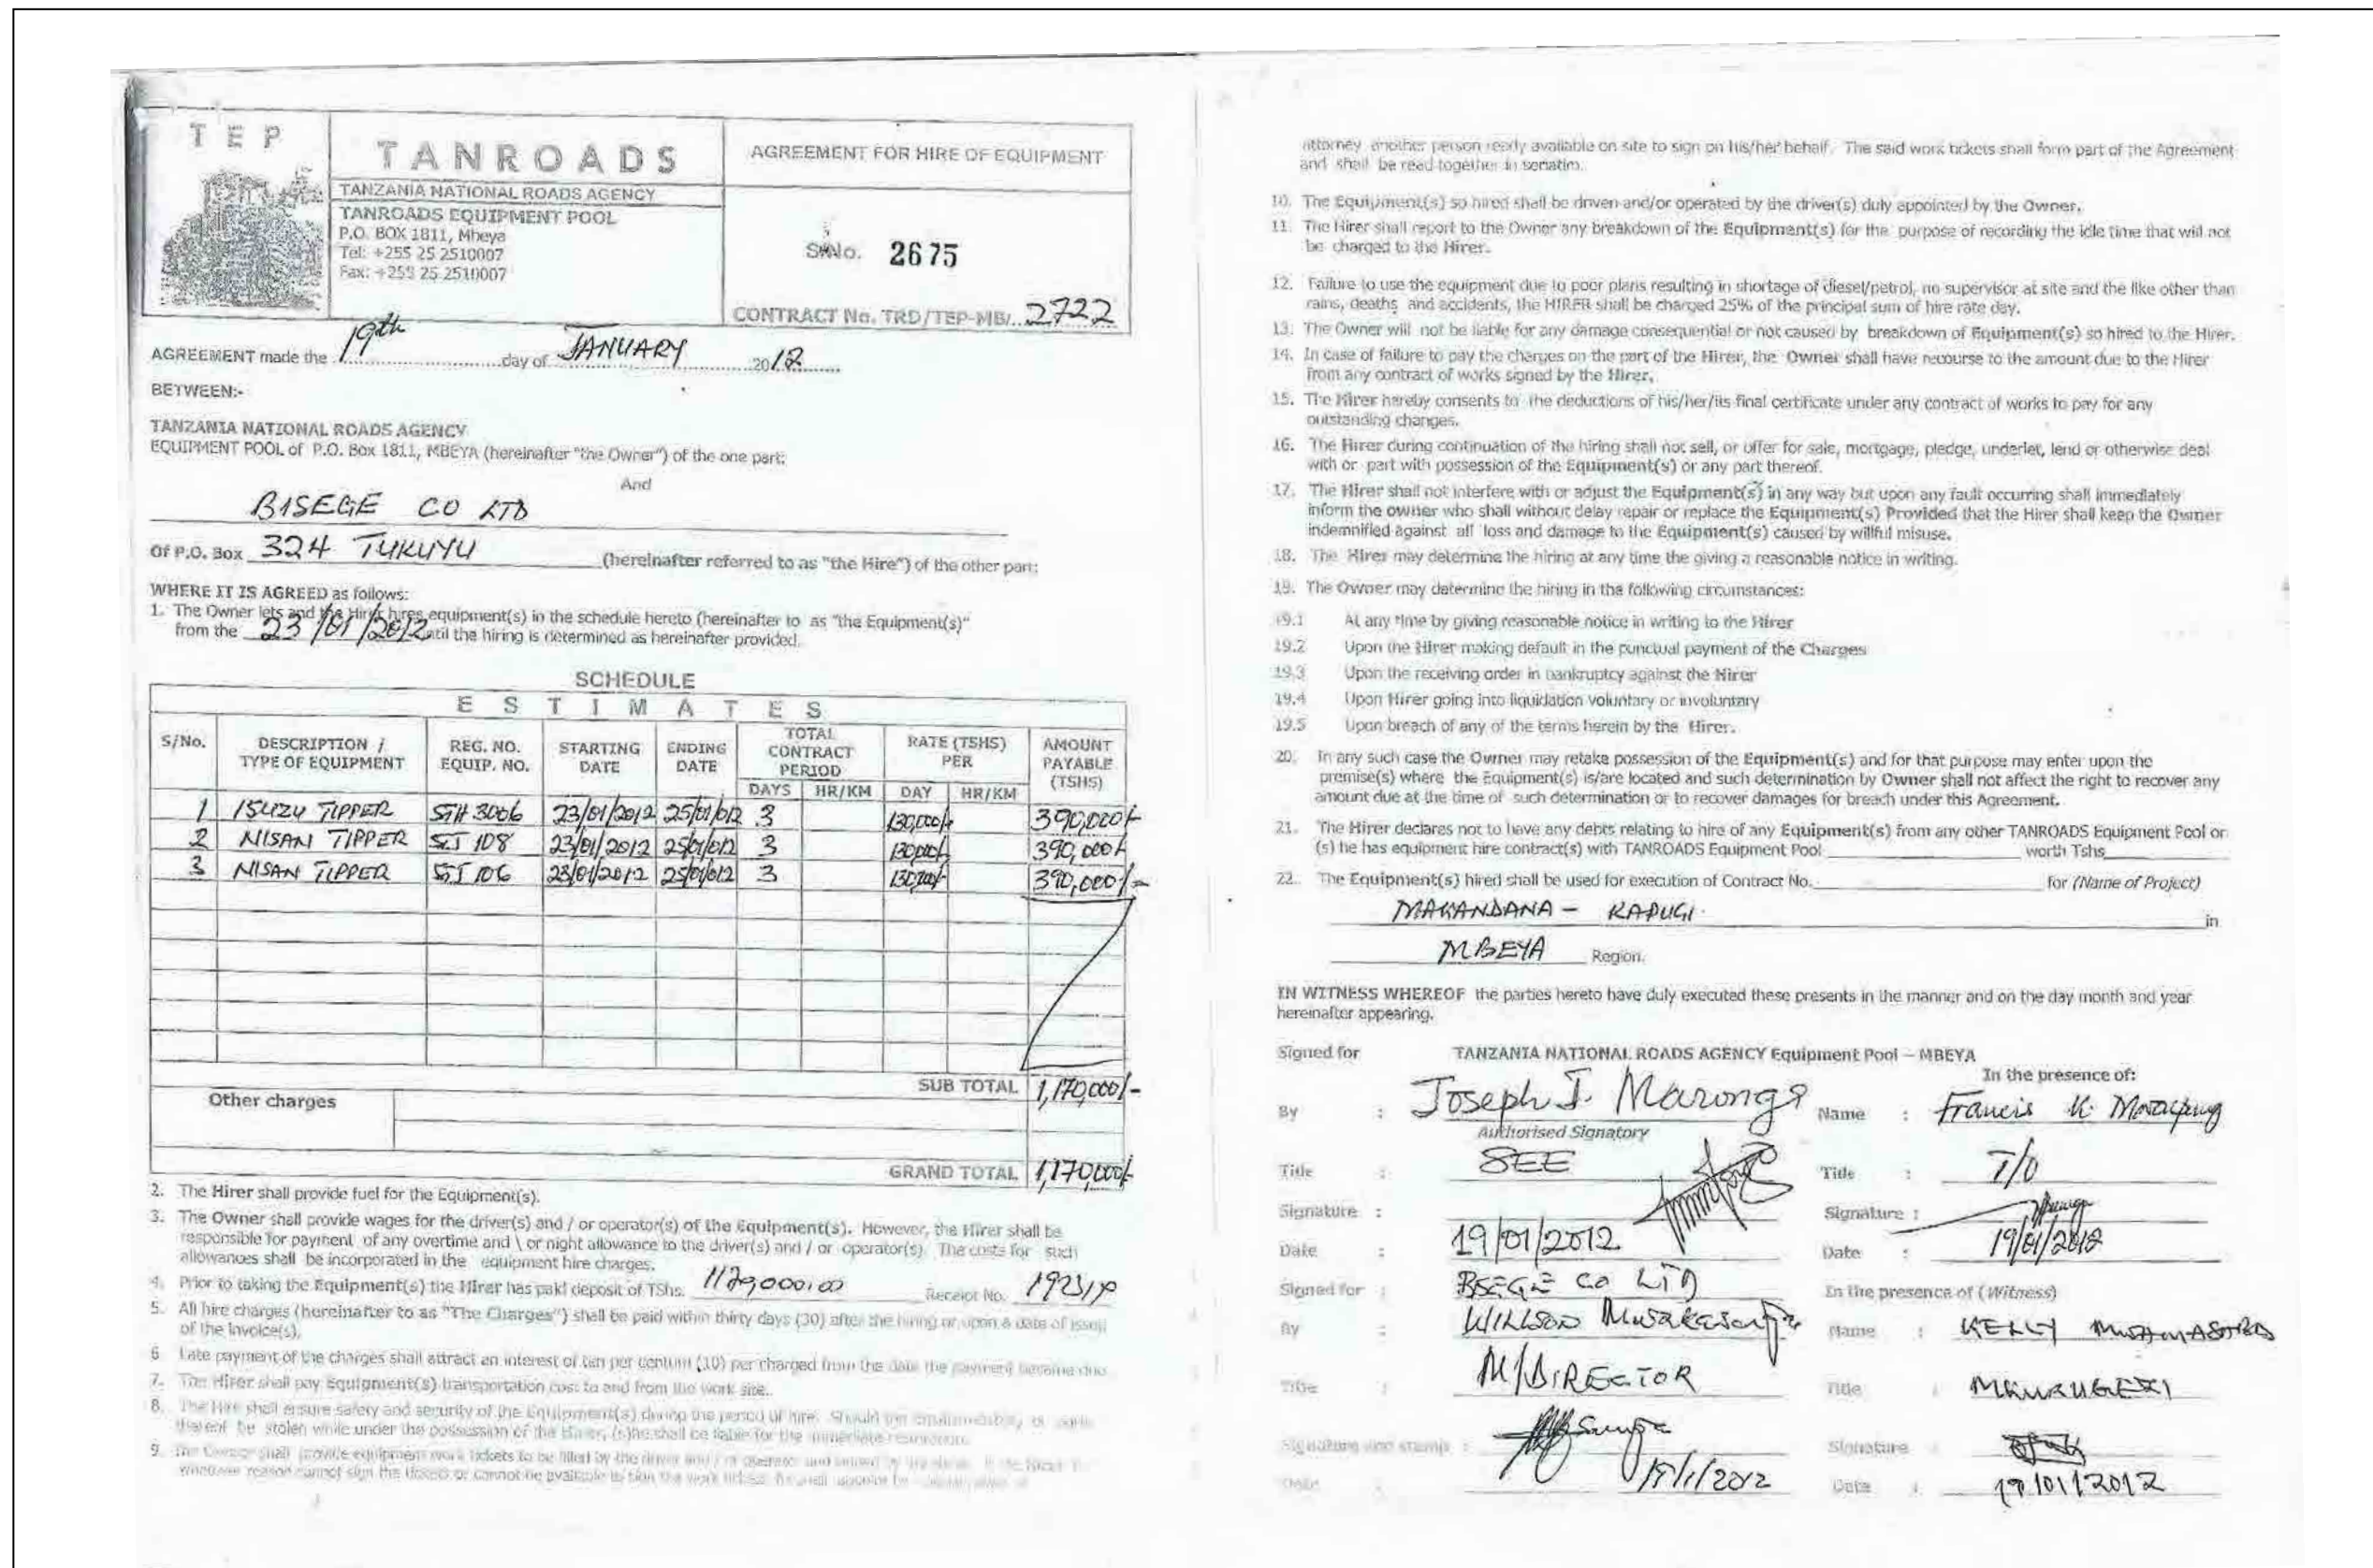 TEP
TANROADS
TANZANIA NATIONAL ROADS AGENCY
TANROADS EQUIPMENT POOL
P.O. BOX 1811, Mbeya
Tel: +255 25 2510007
Fax: +255 25 2510007
AGREEMENT FOR HIRE OF EQUIPMENT
S/No. 2675
CONTRACT No. TRD/TEP-MB/ 2722
AGREEMENT made the 19th day of JANUARY 2012
BETWEEN:-
TANZANIA NATIONAL ROADS AGENCY
EQUIPMENT POOL of P.O. Box 1811, MBEYA (hereinafter "the Owner") of the one part;
And
BISEGE CO LTD
Of P.O. Box 324 TUKUYU (hereinafter referred to as "the Hire") of the other part;
WHERE IT IS AGREED as follows:
1. The Owner lets and the Hirer hires equipment(s) in the schedule hereto (hereinafter to as "the Equipment(s)"
from the 23/01/2012 until the hiring is determined as hereinafter provided.
SCHEDULE
ESTIMATES
S/No. DESCRIPTION / TYPE OF EQUIPMENT REG. NO. EQUIP. NO. STARTING DATE ENDING DATE TOTAL CONTRACT PERIOD RATE (TSHS) PER AMOUNT PAYABLE (TSHS)
DAYS HR/KM DAY HR/KM
1 ISUZU TIPPER STH 3006 23/01/2012 25/01/012 3 130,000/- 390,000/-
2 NISAN TIPPER STJ 108 23/01/2012 25/01/012 3 130,000/- 390,000/-
3 NISAN TIPPER STJ 106 23/01/2012 25/01/012 3 130,000/- 390,000/-
SUB TOTAL 1,170,000/-
Other charges
GRAND TOTAL 1,170,000/-
2. The Hirer shall provide fuel for the Equipment(s).
3. The Owner shall provide wages for the driver(s) and / or operator(s) of the Equipment(s). However, the Hirer shall be
responsible for payment of any overtime and \ or night allowance to the driver(s) and / or operator(s). The costs for such
allowances shall be incorporated in the equipment hire charges.
4. Prior to taking the Equipment(s) the Hirer has paid deposit of TShs. Receipt No.
5. All hire charges (hereinafter to as "The Charges") shall be paid within thirty days (30) after the hiring or upon a date of issue
of the invoice(s).
6 Late payment of the charges shall attract an interest of ten per centum (10) per charged from the date the payment became due
7. The Hirer shall pay Equipment(s) transportation cost to and from the work site..
8. The Hire shall ensure safety and security of the Equipment(s) during the period of hire. Should the
thereof be stolen while under the possession of the Hirer, (s)he shall be liable for the immediate
9. The Owner shall provide equipment work tickets to be filled by the driver and / or operator and signed by the
reason cannot sign the tickets or cannot be available to sign the work tickets
attorney another person readily available on site to sign on his/her behalf. The said work tickets shall form part of the Agreement
and shall be read together in seriatim.
10. The Equipment(s) so hired shall be driven and/or operated by the driver(s) duly appointed by the Owner.
11. The Hirer shall report to the Owner any breakdown of the Equipment(s) for the purpose of recording the idle time that will not
be charged to the Hirer.
12. Failure to use the equipment due to poor plans resulting in shortage of diesel/petrol, no supervisor at site and the like other than
rains, deaths and accidents, the HIRER shall be charged 25% of the principal sum of hire rate day.
13. The Owner will not be liable for any damage consequential or not caused by breakdown of Equipment(s) so hired to the Hirer.
14. In case of failure to pay the charges on the part of the Hirer, the Owner shall have recourse to the amount due to the Hirer
from any contract of works signed by the Hirer.
15. The Hirer hereby consents to the deductions of his/her/its final certificate under any contract of works to pay for any
outstanding changes.
16. The Hirer during continuation of the hiring shall not sell, or offer for sale, mortgage, pledge, underlet, lend or otherwise deal
with or part with possession of the Equipment(s) or any part thereof.
17. The Hirer shall not interfere with or adjust the Equipment(s) in any way but upon any fault occurring shall immediately
inform the owner who shall without delay repair or replace the Equipment(s) Provided that the Hirer shall keep the Owner
indemnified against all loss and damage to the Equipment(s) caused by willful misuse.
18. The Hirer may determine the hiring at any time the giving a reasonable notice in writing.
19. The Owner may determine the hiring in the following circumstances:
19.1 At any time by giving reasonable notice in writing to the Hirer
19.2 Upon the Hirer making default in the punctual payment of the Charges
19.3 Upon the receiving order in bankruptcy against the Hirer
19.4 Upon Hirer going into liquidation voluntary or involuntary
19.5 Upon breach of any of the terms herein by the Hirer.
20. In any such case the Owner may retake possession of the Equipment(s) and for that purpose may enter upon the
premise(s) where the Equipment(s) is/are located and such determination by Owner shall not affect the right to recover any
amount due at the time of such determination or to recover damages for breach under this Agreement.
21. The Hirer declares not to have any debts relating to hire of any Equipment(s) from any other TANROADS Equipment Pool or
(s) he has equipment hire contract(s) with TANROADS Equipment Pool worth Tshs
22. The Equipment(s) hired shall be used for execution of Contract No. for (Name of Project)
MAKANDANA - KAPUGI in
MBEYA Region.
IN WITNESS WHEREOF the parties hereto have duly executed these presents in the manner and on the day month and year
hereinafter appearing.
Signed for TANZANIA NATIONAL ROADS AGENCY Equipment Pool – MBEYA
In the presence of:
By : Joseph J. Name : Francis K.
Authorised Signatory
Title : SEE Title : T/O
Signature : Signature :
Date : 19/01/2012 Date : 19/01/2012
Signed for : BSEGE CO LTD In the presence of (Witness)
By : WILLSON Name : KELLY
Title : M/DIRECTOR Title : MKURUGEZI
Signature and stamp : Signature :
Date : 19/1/2012 Date : 19/01/2012